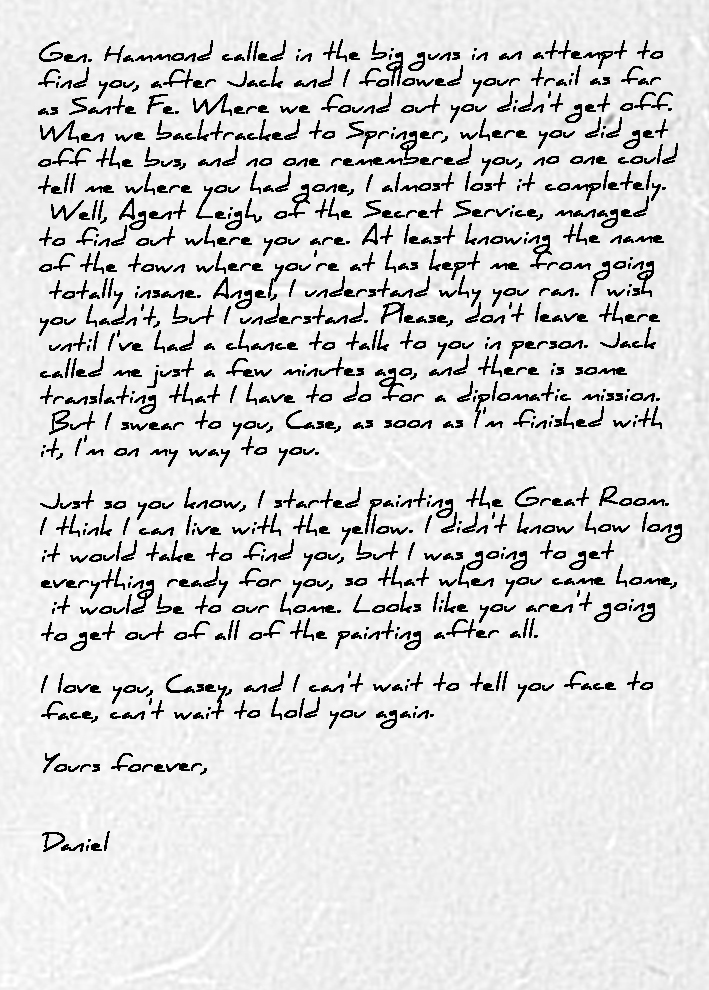 Gen. Hammond called in the big guns in an attempt to
find you, after Jack and I followed your trail as far
as Sante Fe. Where we found out you didn't get off.
When we backtracked to Springer, where you did get
off the bus, and no one remembered you, no one could
tell me where you had gone, I almost lost it completely.
Well, Agent Leigh, of the Secret Service, managed
to find out where you are. At least knowing the name
of the town where you're at has kept me from going
totally insane. Angel, I understand why you ran. I wish
you hadn't, but I understand. Please, don't leave there
until I've had a chance to talk to you in person. Jack
called me just a few minutes ago, and there is some
translating that I have to do for a diplomatic mission.
But I swear to you, Case, as soon as I'm finished with
it, I'm on my way to you.
Just so you know, I started painting the Great Room.
I think I can live with the yellow. I didn't know how long
it would take to find you, but I was going to get
everything ready for you, so that when you came home,
it would be to our home. Looks like you aren't going
to get out of all of the painting after all.
I love you, Casey, and I can't wait to tell you face to
face, can't wait to hold you again.
Yours forever,
Daniel